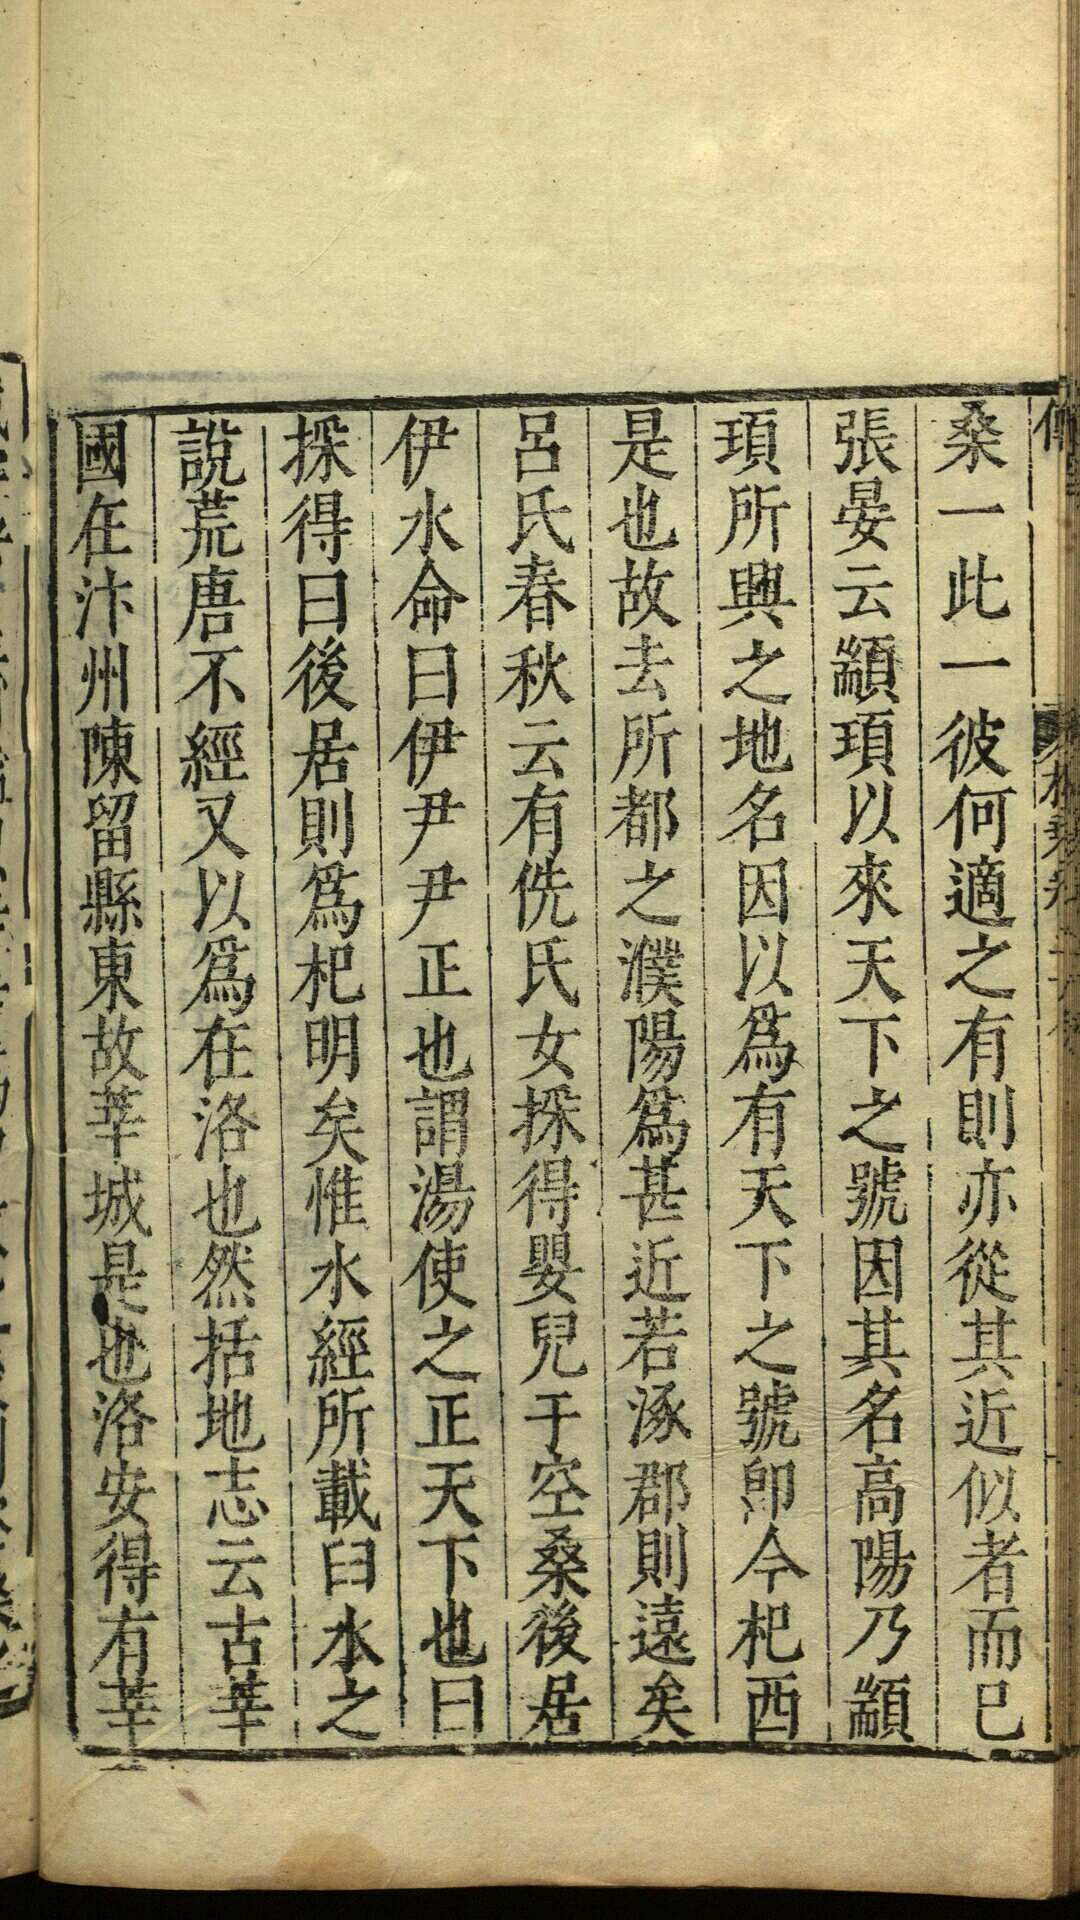 桑一此一彼何適之有則亦從其近似者而已
張晏云顓頊以來天下之號因其名高陽乃顓
頊所興之地名因以為有天下之號卽今杞酉
是也故去所都之濮陽為甚近若涿郡則遠矣
呂氏春秋云有侁氏女採得嬰兒于空桑後居
伊水命曰伊尹尹正也謂湯使之正天下也曰
採得曰後居則為杞明矣惟水經所載臼水之
說荒唐不經又以為在洛也然括地志云古莘
國在汴州陳留縣東故莘城是也洛安得有莘